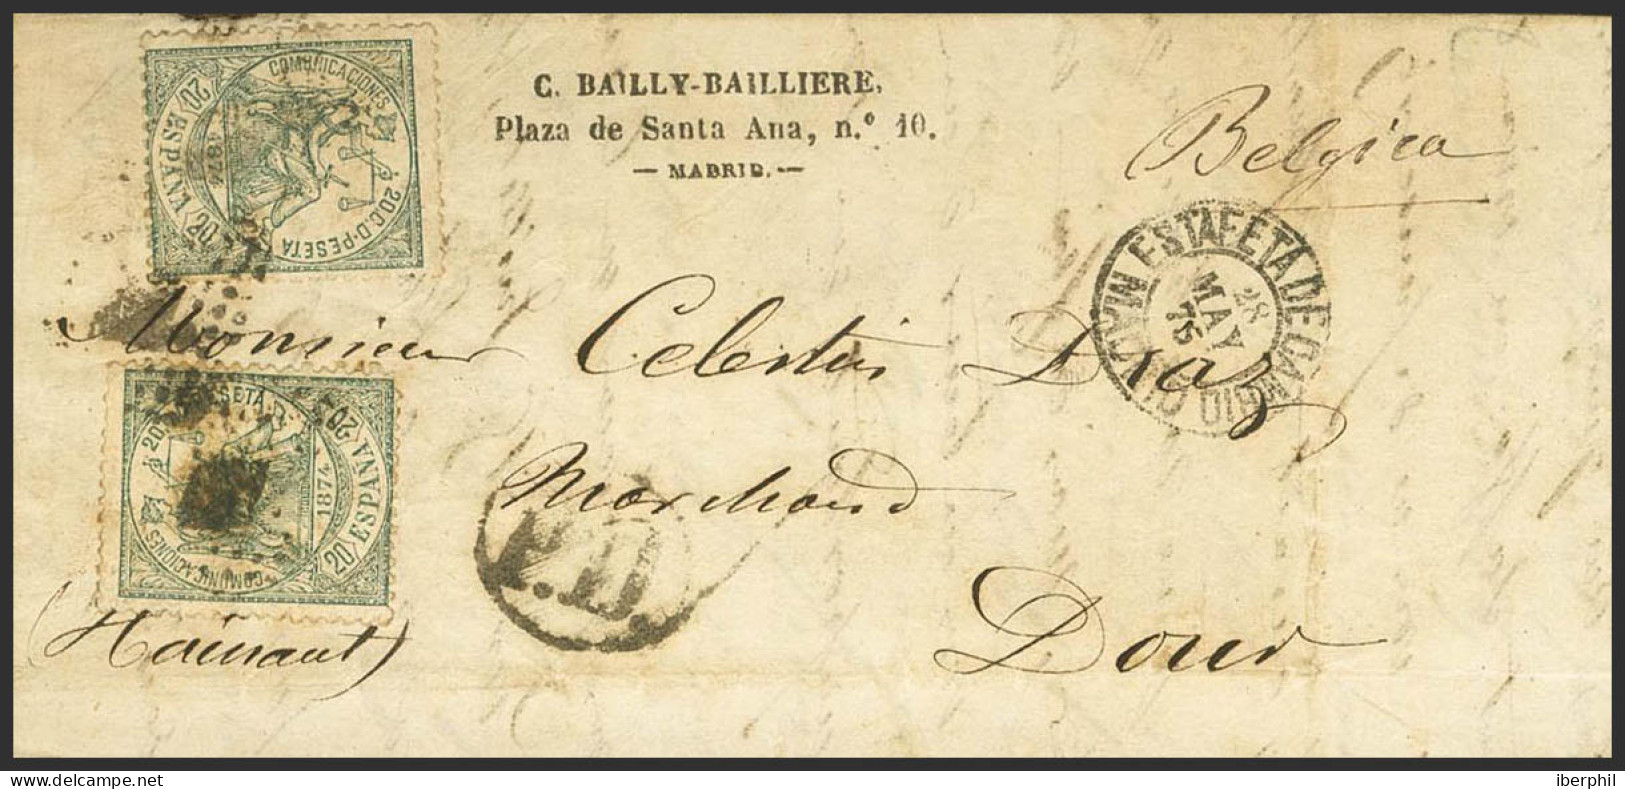 C. BAILLY-BAILLIERE,
Plaza de Santa Ana, n.º 10.
— MADRID. —
Belgica
COMUNICACIONES
20 C. D. PESETA
20 ESPAÑA 20
1874
ESTAFETA DE CAMBIO
28
MAY
75
Monsieur Celestin
PESETA
20
20 ESPAÑA 20
1874
COMUNICACIONES
Marchand
P.D.
(Hainaut)
Dour
iberphil